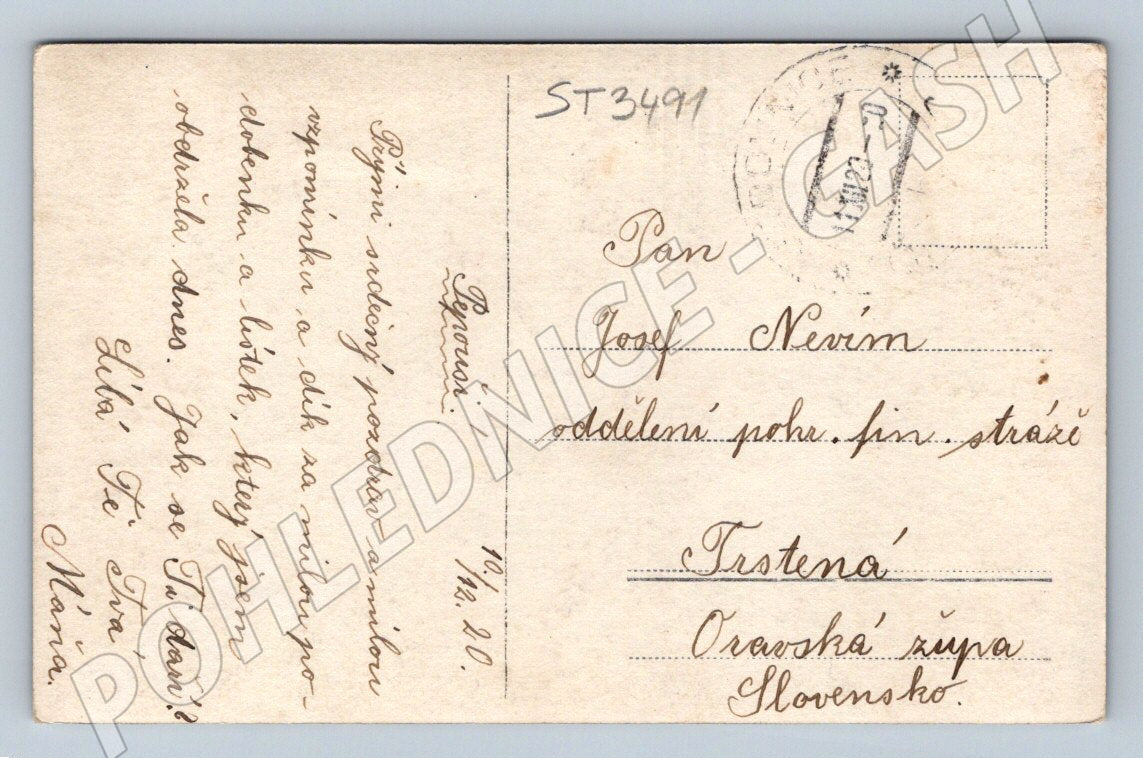 ST3491
Pepousi.
10/12.20.
Přijmi srdečný pozdrav a milou
vzpomínku a dík za milou po-
dobenku a lístek, který jsem
obdržela dnes. Jak se Ti daří?
Líbá Tě Tvá
Máňa.
Pan
Josef Nevím
oddělení pohr. fin. stráže
Trstená
Oravská župa
Slovensko.
POHLEDNICE - CASH